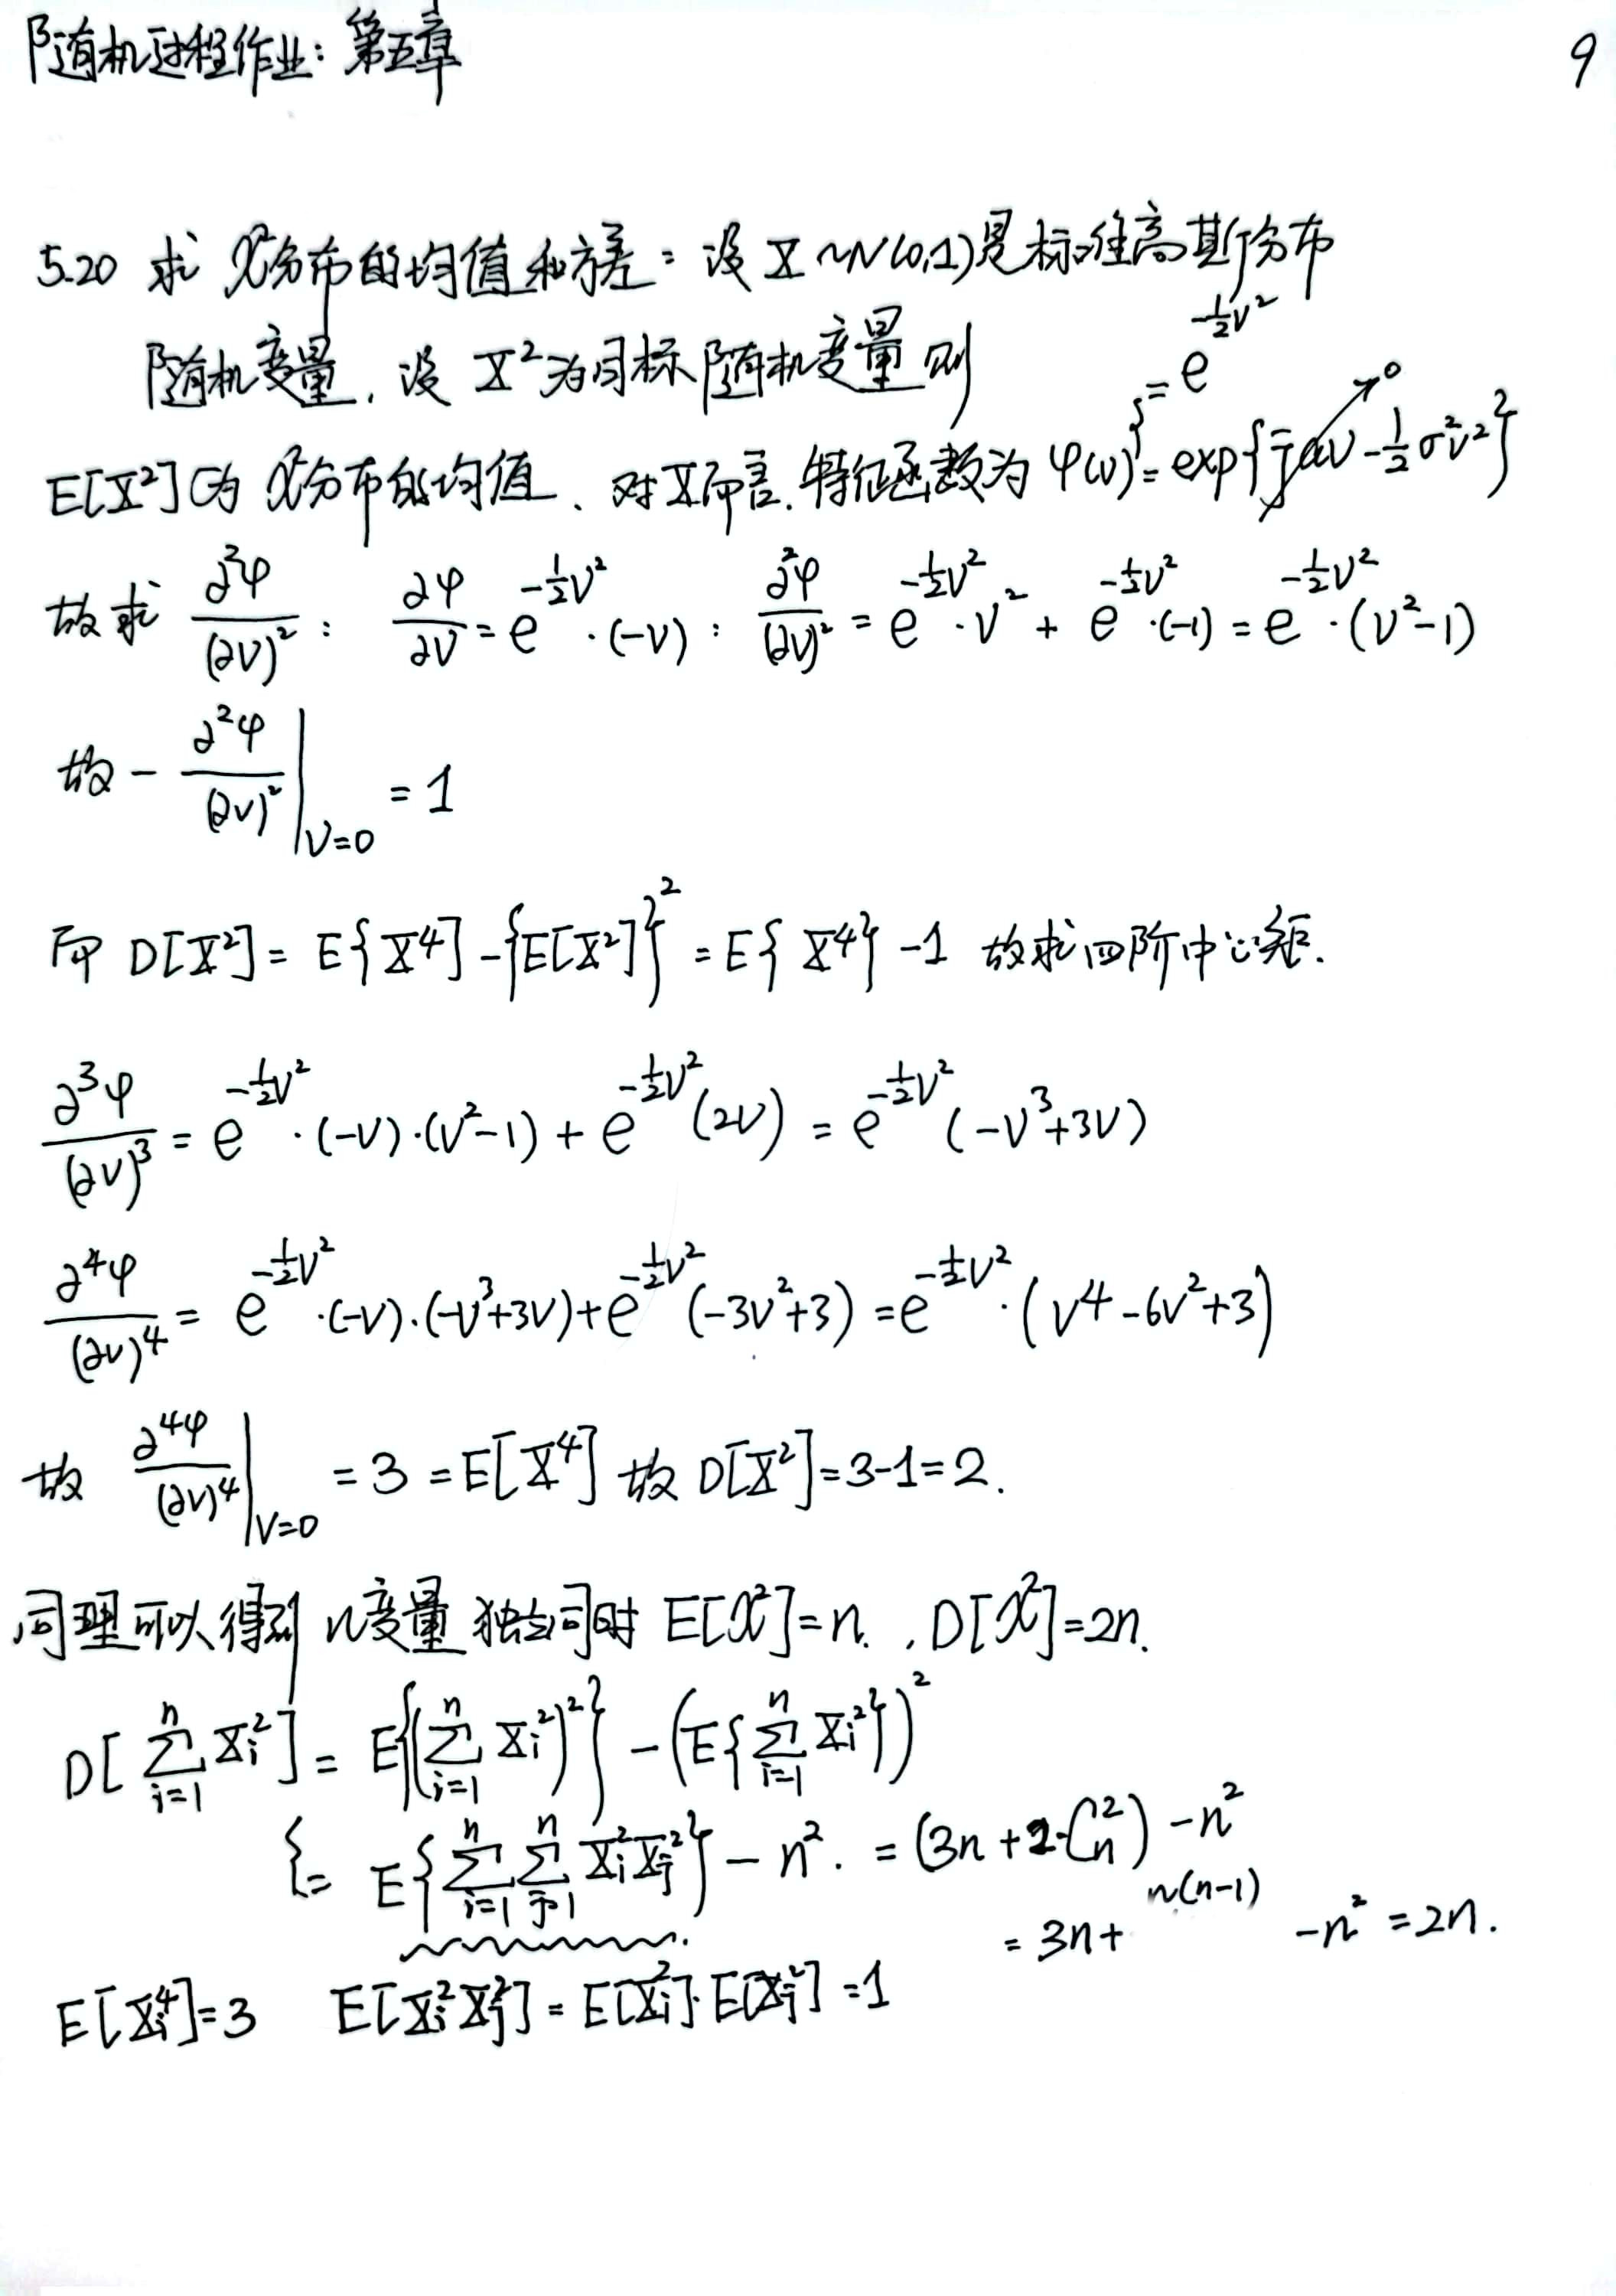 随机过程作业：第五章
9
5.20 求 χ²分布的均值和方差：设 X ~ N(0,1)是标准高斯分布
随机变量，设 X² 为目标随机变量 则
E[X²] 即为 χ²分布的均值、对X而言，特征函数为 φ(v) = exp{jav - ½σ²v²} = e^{-½v²}
故求 ∂²φ/(∂v)² : ∂φ/∂v = e^{-½v²}·(-v) : ∂²φ/(∂v)² = e^{-½v²}·v² + e^{-½v²}·(-1) = e^{-½v²}·(v²-1)
故 - ∂²φ/(∂v)² |_{v=0} = 1
而 D[X²] = E{X⁴] - {E[X²]}² = E{X⁴} - 1 故求四阶中心矩.
∂³φ/(∂v)³ = e^{-½v²}·(-v)·(v²-1) + e^{-½v²}(2v) = e^{-½v²}(-v³+3v)
∂⁴φ/(∂v)⁴ = e^{-½v²}·(-v)·(-v³+3v) + e^{-½v²}(-3v²+3) = e^{-½v²}·(v⁴-6v²+3)
故 ∂⁴φ/(∂v)⁴ |_{v=0} = 3 = E[X⁴] 故 D[X²] = 3-1 = 2.
同理可以得到 n变量 独立同时 E[χ²] = n. , D[χ²] = 2n.
D[∑_{i=1}^{n} X_i²] = E{(∑_{i=1}^{n} X_i²)²} - (E{∑_{i=1}^{n} X_i²})²
= E{∑_{i=1}^{n} ∑_{j=1}^{n} X_i² X_j²} - n². = (3n + 2·C_n²) - n²
= 3n + n(n-1) - n² = 2n.
E[X_i⁴] = 3 E[X_i² X_j²] = E[X_i²]·E[X_j²] = 1